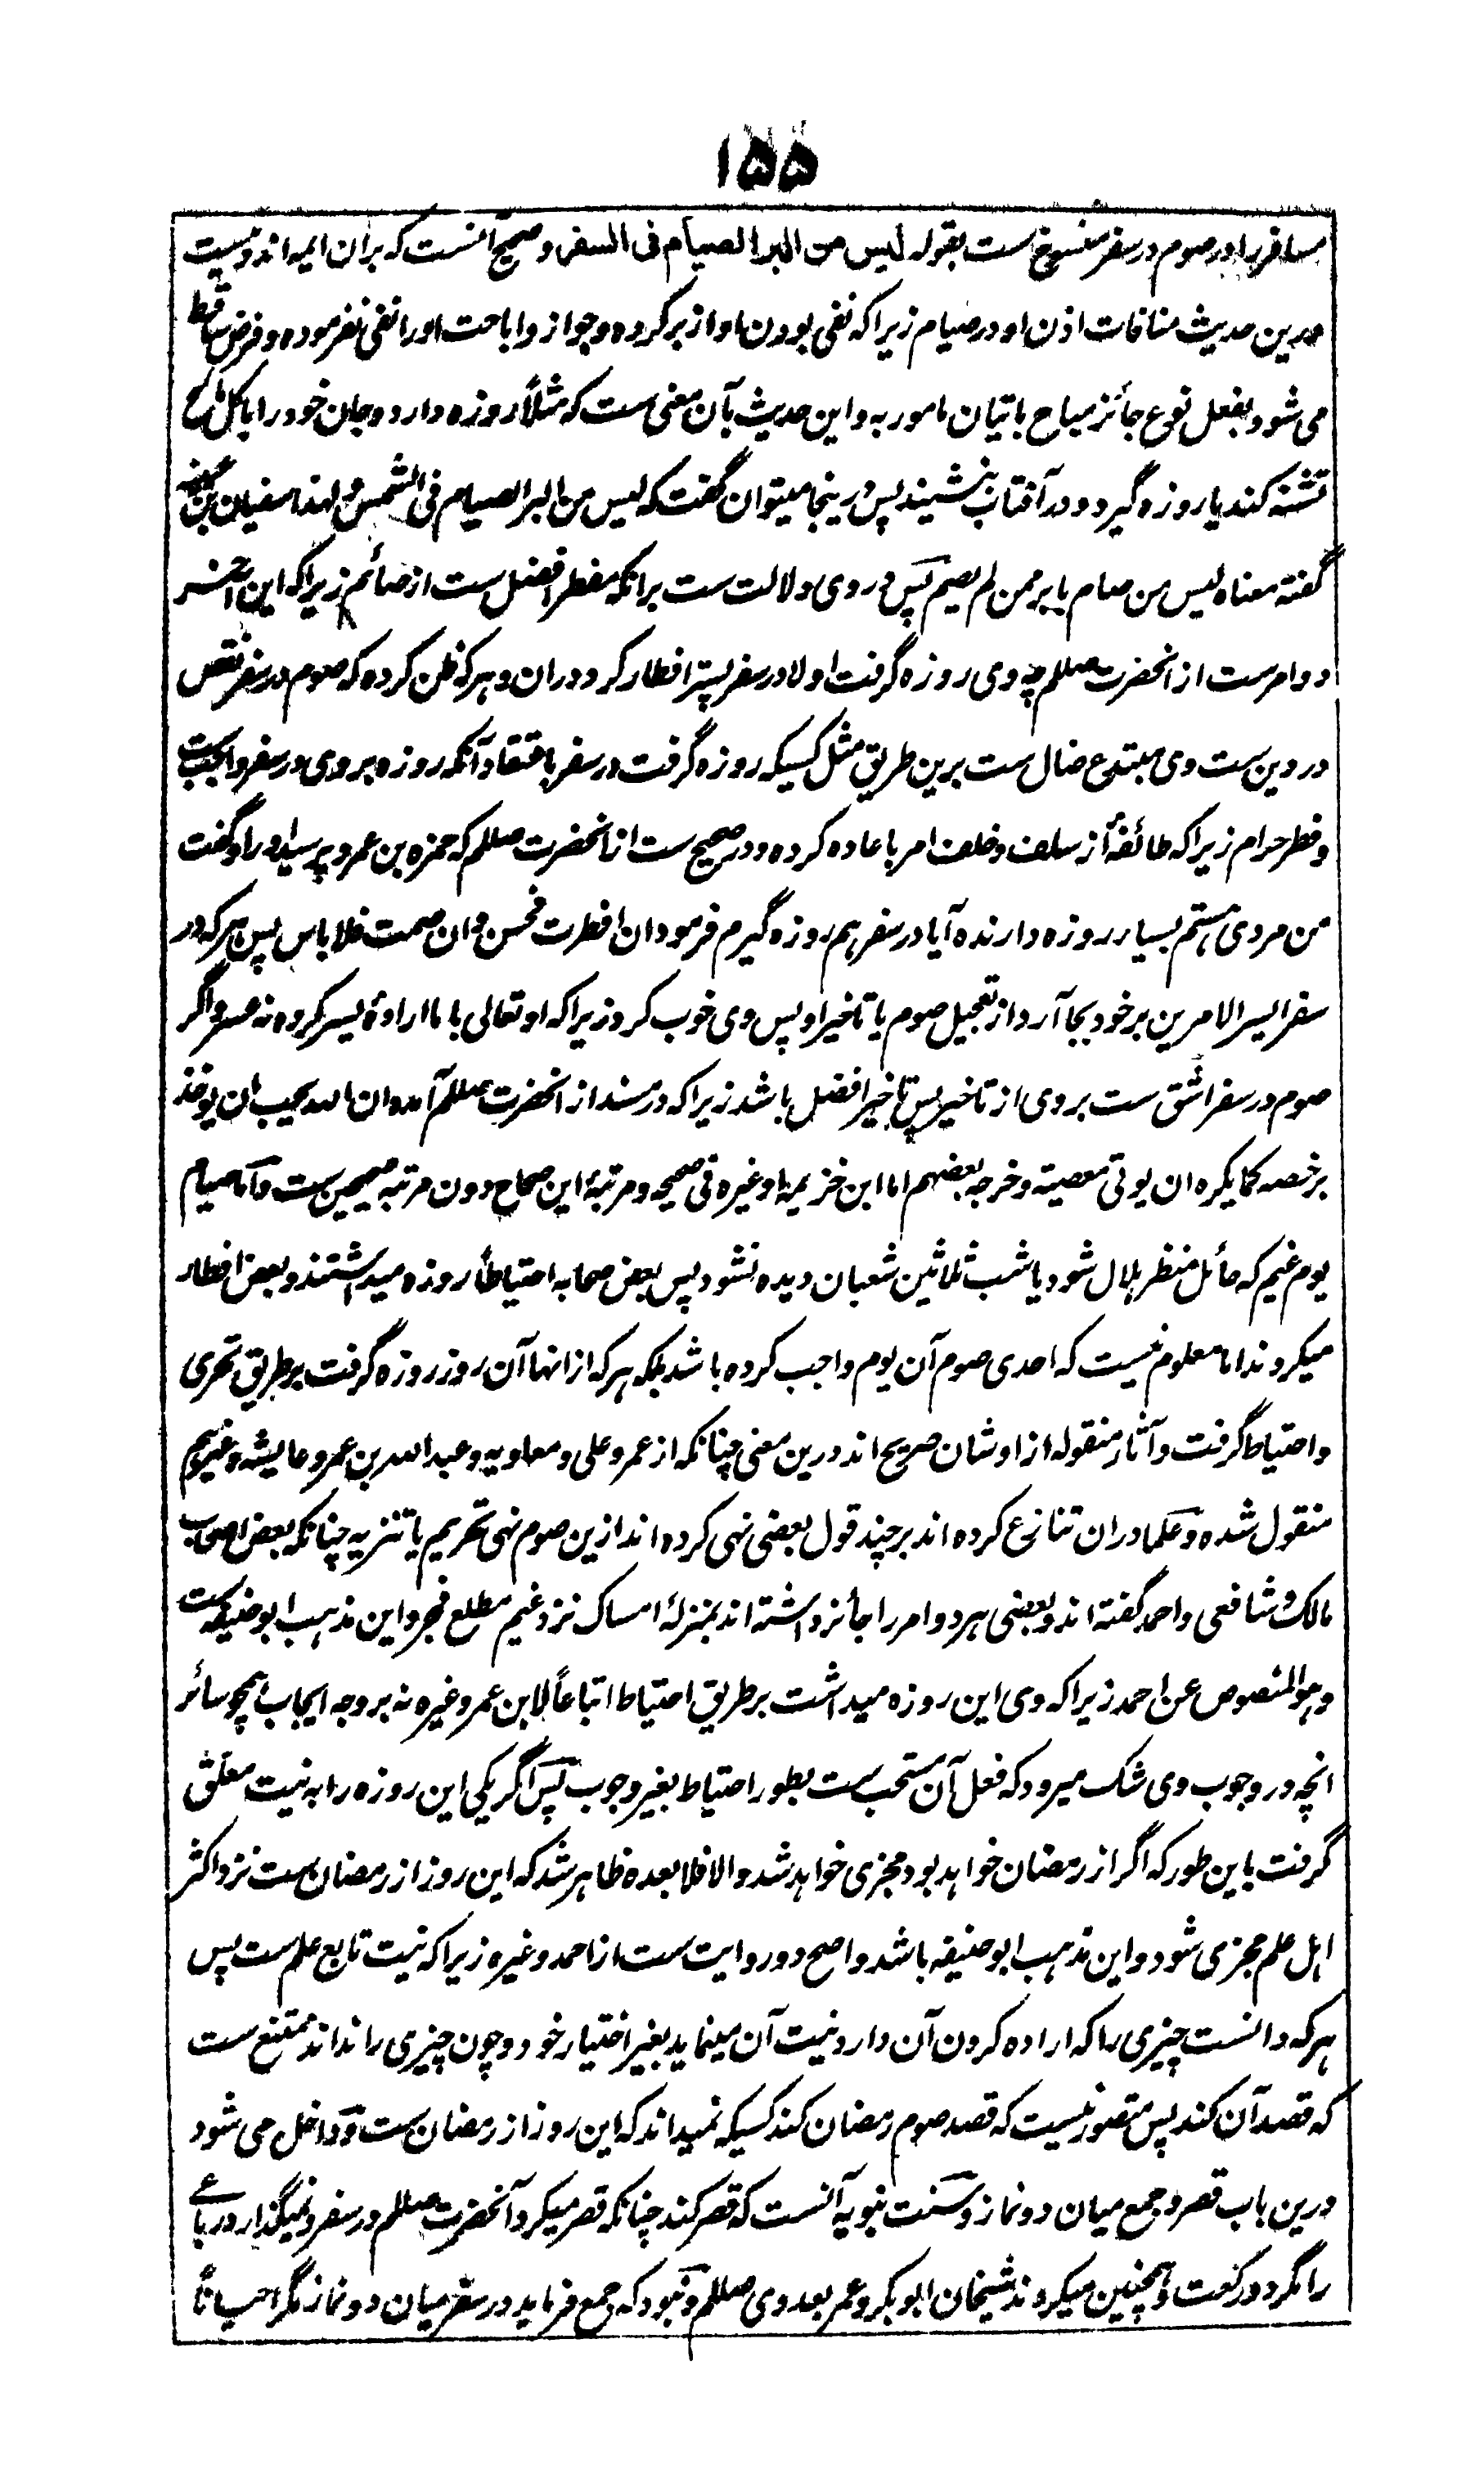 ۱۵۵
مسافر را و صوم در سفر منسوخ ست بقوله لیس من البر الصیام فی السفر و صحیح آنست که بران ایمه اند و نیست
درین حدیث منافات اذن او در صیام زیرا که نفی بودن او از بر کرده و جواز و اباحت او را نفی نفرموده و فرض ساقط
می شود بفعل نوع جائز مباح باتیان مامور به و این حدیث بآن معنی ست که مثلاً روزه دارد و جان خود را با کل
تشنه کند یا روزه گیرد و در آفتاب نشیند پس درینجا میتوان گفت که لیس من البر الصیام فی الشمس و لهذا سفیان بن عیینه
گفته معناه لیس من صام بابر ممن لم یصم پس در وی دلالت ست برانکه مفطر افضل ست از صائم زیرا که این آخر
دو امر ست از انحضرت صللم چه وی روزه گرفت اولا در سفر پستر افطار کرد دران و هر که ظن کرده که صوم در سفر نقص
در دین ست وی مبتدع ضال ست برین طریق مثل کسیکه روزه گرفت در سفر باعتقاد آنکه روزه بر وی در سفر واجب ست
و فطر حرام زیرا که طائفهٔ از سلف و خلف امر باعاده کرده و در صحیح ست از انحضرت صللم که حمزه بن عمرو پرسید او را و گفت
من مردی هستم بسیار روزه دارنده آیا در سفر هم روزه گیرم فرمود ان افطرت فحسن و ان صمت فلا باس پس هر که در
سفر ایسر الامرین بر خود بجا آرد از تعجیل صوم یا تاخیر او پس وی خوب کرد زیرا که او تعالی با ما ارادهٔ یسر کرده نه عسر و اگر
صوم در سفر اشق ست بر وی از تاخیر پس تاخیر افضل باشد زیرا که در مسند از انحضرت صللم آمده ان الله یحب ان یوخذ
برخصه کما یکره ان یوتی معصیته و خرجه بعضهم اما ابن خزیمه او غیره فی صحیحه و مرتبهٔ این صحاح دون مرتبه صحیحین ست و اما صیام
یوم غیم که حائل منظر هلال شود یا شب ثلاثین شعبان دیده نشود پس بعض صحابه احتیاطاً روزه میداشتند و بعض افطار
میکردند اما معلوم نیست که احدی صوم آن یوم واجب کرده باشد بلکه هر که از انها آن روز روزه گرفت بر طریق تحری
و احتیاط گرفت و آثار منقوله از اوشان صریح اند درین معنی چنانکه از عمر و علی و معاویه و عبدالله بن عمر و عایشه و غیرهم
منقول شده و علما دران تنازع کرده اند بر چند قول بعضی نهی کرده اند ازین صوم نهی تحریم یا تنزیه چنانکه بعض اصحاب
مالک و شافعی و احمد گفته اند و بعضی هر دو امر را جائز داشته اند بمنزلهٔ امساک نزد غیم مطلع فجر و این مذهب ابو حنیفه ست
و هو المنصوص عن احمد زیرا که وی این روزه میداشت بر طریق احتیاط اتباعاً لابن عمر و غیره نه بر وجه ایجاب همچو سائر
انچه در وجوب وی شک میرود که فعل آن مستحب ست بطور احتیاط بغیر وجوب پس اگر یکی این روزه را به نیت معلق
گرفت باین طور که اگر از رمضان خواهد بود مجزی خواهد شد والا فلا بعده ظاهر شد که این روز از رمضان ست نزد اکثر
اهل علم مجزی شود و این مذهب ابو حنیفه باشد و اصح دو روایت ست از احمد و غیره زیرا که نیت تابع علم ست پس
هر که دانست چیزی را که اراده کردن آن دارد نیت آن مینماید بغیر اختیار خود و چون چیزی را نداند ممتنع ست
که قصد آن کند پس متصور نیست که قصد صوم رمضان کند کسیکه نمیداند که این روز از رمضان ست و داخل می شود
درین باب قصر و جمع میان دو نماز و سنت نبویه آنست که قصر کند چنانکه قصر میکرد آنحضرت صللم در سفر و نمیگذارد رباعی
را مگر دو رکعت و همچنین میکردند شیخان ابو بکر و عمر بعد وی صللم و نبود که جمع فرماید در سفر میان دو نماز مگر احیاناً